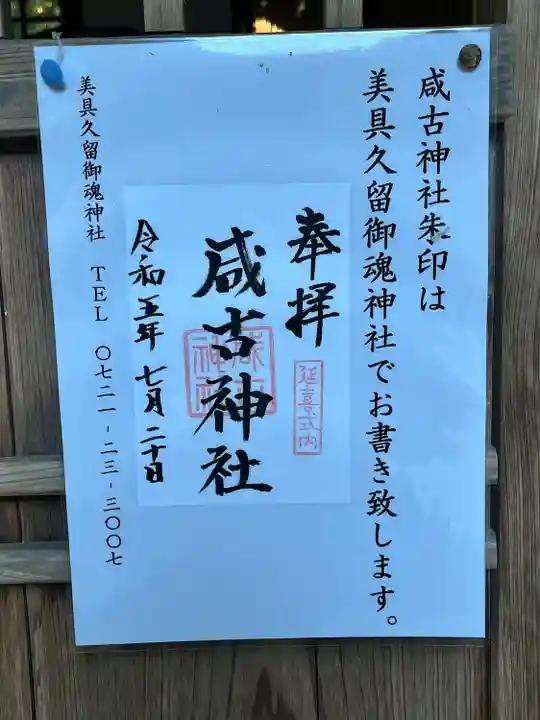 咸古神社朱印は
美具久留御魂神社でお書き致します。
奉拝
延喜式内
咸古神社
咸古神社
令和五年七月二十日
美具久留御魂神社 TEL 〇七二一-二三-三〇〇七